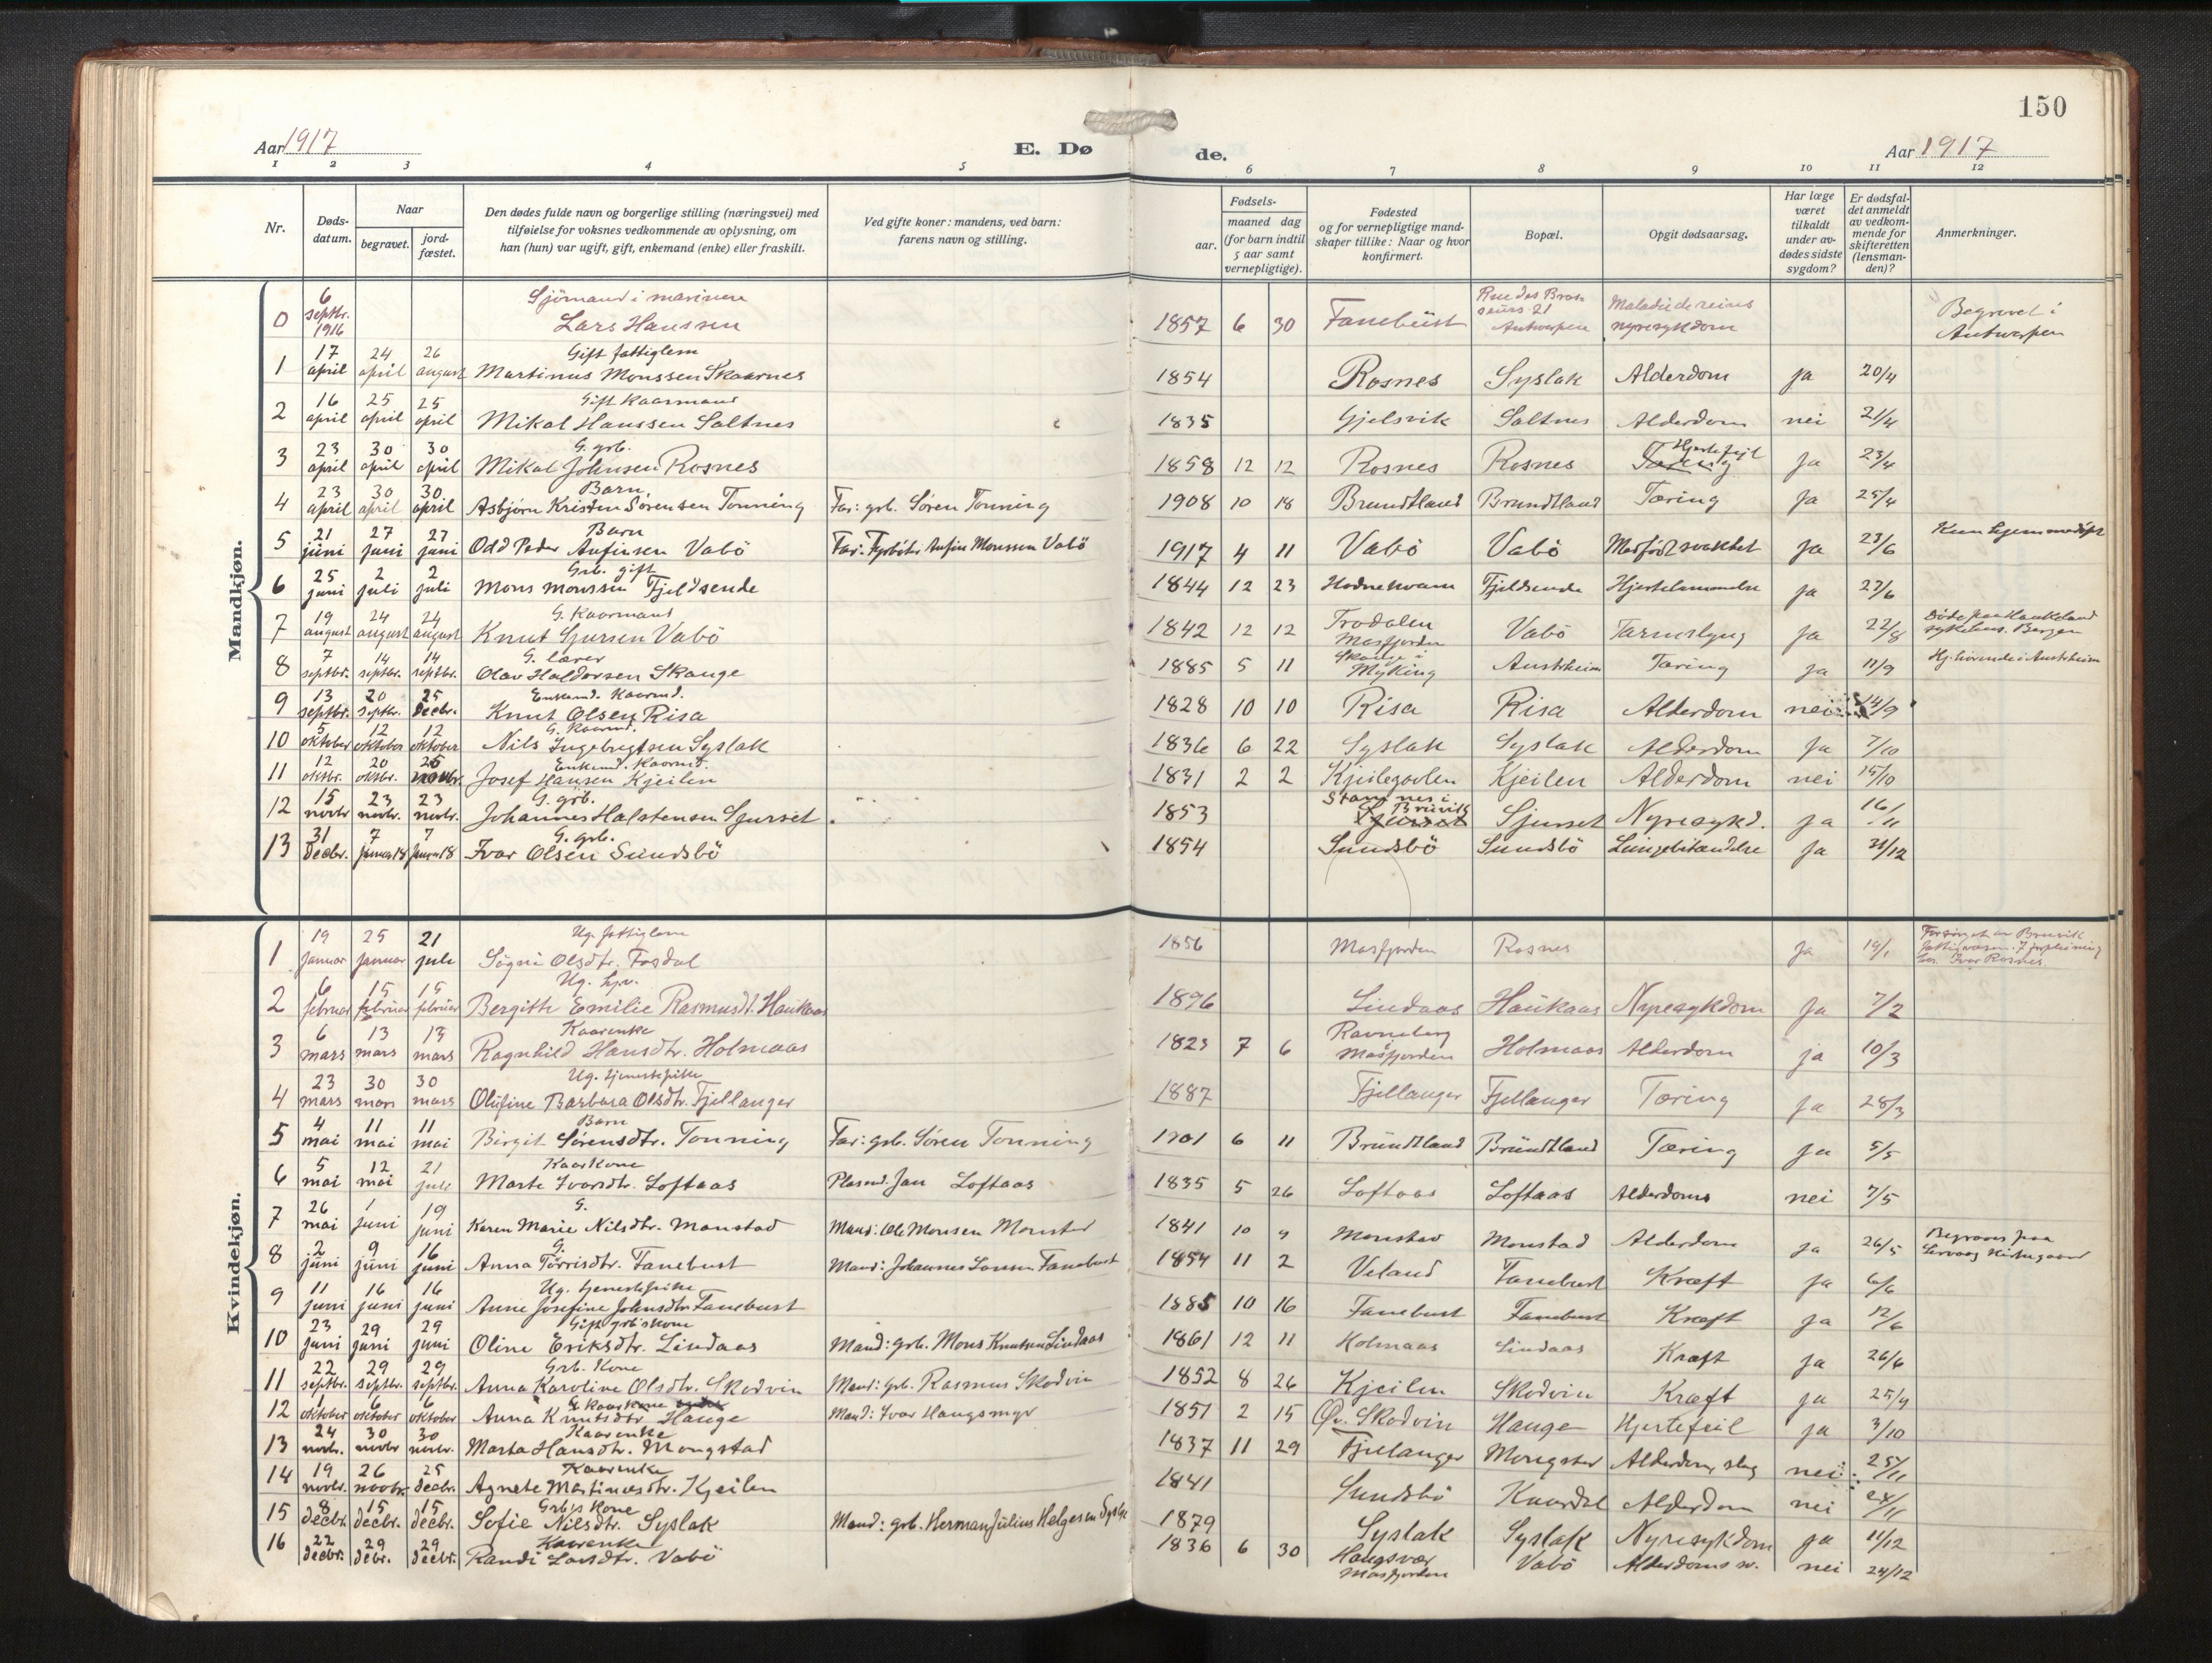 150
Aar 1917
E. Dø
de.
Aar 1917
1 2 3 4 5 6 7 8 9 10 11 12
Nr.
Døds-
datum.
Naar
begravet.
jord-
fæstet.
Den dødes fulde navn og borgerlige stilling (næringsvei) med
tilføielse for voksnes vedkommende av oplysning, om
han (hun) var ugift, gift, enkemand (enke) eller fraskilt.
Ved gifte koner: mandens, ved barn:
farens navn og stilling.
Fødsels-
aar.
maaned dag
(for barn indtil
5 aar samt
vernepligtige).
Fødested
og for vernepligtige mand-
skaper tillike: Naar og hvor
konfirmert.
Bopæl.
Opgit dødsaarsag.
Har læge
været
tilkaldt
under av-
dødes sidste
sygdom?
Er dødsfal-
det anmeldt
av vedkom-
mende for
skifteretten
(lensman-
den)?
Anmerkninger.
Mandkjøn.
0 6 septbr. 1916 Sjömand i marinen
Lars Hanssen 1857 6 30 Fanebüst Rue des Bras-
seurs 21 Antwerpen Maladie de reins
nyresykdom Begravet i
Antwerpen
1 17 april 24 april 26 august Gift fattiglem
Martinus Monssen Skaarnes 1854 Rosnes Syslak Alderdom ja 20/4
2 16 april 25 april 25 april Gift Kaarmand
Mikal Hanssen Saltnes 1835 Gjelsvik Saltnes Alderdom nei 21/4
3 23 april 30 april 30 april G. grb.
Mikal Johnsen Rosnes 1858 12 12 Rosnes Rosnes Tæring Hjertefeil ja 23/4
4 23 april 30 april 30 april Barn
Asbjørn Kristen Sørensen Tonning Far: grb. Søren Tonning 1908 10 18 Brundtland Brundtland Tæring ja 25/4
5 21 juni 27 juni 27 juni Barn
Odd Peder Anfinsen Vabö Far: Fyrbøter Anfin Monssen Vabö 1917 4 11 Vabö Vabö Medfödt svakhet ja 23/6 Kun hjemmedöpt
6 25 juni 2 juli 2 juli Grb. gift
Mons Monssen Fjeldsende 1844 12 23 Hodnekvam Fjeldsende ja 27/6
7 19 august 24 august 24 august G. Kaarmand
Knut Sjursen Vabö 1842 12 12 Trodalen
Masfjorden Vabö Tarmslyng ja 22/8 Döde paa Haukeland
sykehus. Bergen
8 7 septbr. 14 septbr. 14 septbr. G. lærer
Olav Haldorsen Skauge 1885 5 11 Skauge i
Myking Austrheim Tæring ja 11/9 Hj. hörende i Austrheim
9 13 septbr. 20 septbr. 25 decbr. Enkemd. Kaarmd.
Knut Olsen Risa 1828 10 10 Risa Risa Alderdom nei 14/9
10 5 oktober 12 oktober 12 oktober G. Kaarmd.
Nils Ingebrigtsen Syslak 1836 6 22 Syslak Syslak Alderdom ja 7/10
11 12 oktbr. 20 oktbr. 25 novbr. Enkemd. Kaarmd.
Josef Hansen Kjeilen 1831 2 2 Kjeilegavlen Kjeilen Alderdom nei 15/10
12 15 novbr 23 novbr. 23 novbr. G. grb.
Johannes Halstensen Sjurset 1853 Stamnes i
Bruvik Sjurset Nyresykd. ja 16/11
13 31 decbr. 7 januar 18 7 januar 18 G. grb.
Ivar Olsen Sundsbö 1854 Sundsbö Sundsbö Lungebetændelse ja 31/12
Kvindekjøn.
1 19 januar 25 januar 21 juli Ug. fattiglem
Sögni Olsdtr. Fosdal 1856 Masfjorden Rosnes ja 19/1 Forsörget av Bruvik
fattigvæsen. I forpleining
hos Ivar Rosnes.
2 6 februar 15 februar 15 februar Ug. hjv.
Bergithe Emilie Rasmusdt. Haukaas 1896 Lindaas Haukaas Nyresykdom ja 7/2
3 6 mars 13 mars 13 mars Kaarenke
Ragnhild Hansdtr. Holmaas 1823 7 6 Ravneberg
i Masfjorden Holmaas Alderdom ja 10/3
4 23 mars 30 mars 30 mars Ug. tjenestepike
Olüfine Barbara Olsdtr. Fjellanger 1887 Fjellanger Fjellanger Tæring ja 28/3
5 4 mai 11 mai 11 mai Barn
Birgit Sørensdtr. Tonning Far: grb. Sören Tonning 1901 6 11 Brundtland Brundtland Tæring ja 5/5
6 5 mai 12 mai 21 juli Kaarkone
Marte Ivarsdtr. Loftaas Plasmd. Jan Loftaas 1835 5 26 Loftaas Loftaas Alderdoms nei 7/5
7 26 mai 1 juni 19 juni G.
Karen Marie Nilsdtr. Monstad Mand: Ole Monsen Monstad 1841 10 9 Monstad Monstad Alderdom ja 26/5 Begraves paa
Sævraas Kirkegaard
8 2 juni 9 juni 16 juni G.
Anna Törrisdtr. Fanebust Mand: Johannes Larsen Fanebust 1854 11 2 Veland Fanebust Kræft ja 6/6
9 11 juni 16 juni 16 juni Ug. tjenestepike
Anne Josefine Johnsdtr Fanebust 1885 10 16 Fanebust Fanebust Kræft ja 12/6
10 23 juni 29 juni 29 juni Gift grb's kone
Oline Eriksdtr. Lindaas Mand: grb. Mons Knutsen Lindaas 1861 12 11 Holmaas Lindaas Kræft ja 26/6
11 22 septbr. 29 septbr. 29 septbr. Grb. Kone
Anna Karoline Olsdtr. Skodvin Mand: Grb. Rasmus Skodvin 1852 8 26 Kjeilen Skodvin Kræft ja 25/9
12 1 oktober 6 oktober 6 oktober G. Kaarkone
Anna Knutsdtr Hauge Mand: Ivar Haugsmyr 1851 2 15 Øv. Skodvin Hauge Hjertefeil ja 3/10
13 24 novbr. 30 novbr 30 novbr. Kaarenke
Marta Hansdtr. Mongstad 1837 11 29 Fjellanger Mongstad Alderdom, slag nei 25/11
14 19 novbr. 26 novbr. 25 decbr. Kaarenke
Agnete Martinusdtr. Kjeilen 1841 Sundsbö Kaardal Alderdom nei 24/11
15 8 decbr. 15 decbr. 15 decbr. Grb's Kone
Sofie Nilsdtr. Syslak Mand: grb. Herman Julius Helgesen Syslak 1879 Syslak Syslak Nyresykdom ja 11/12
16 22 decbr. 29 debr. 29 decbr. Kaarenke
Randi Larsdtr. Vabö 1836 6 30 Haugsvær
Masfjorden Vabö Alderdoms sv. nei 24/12